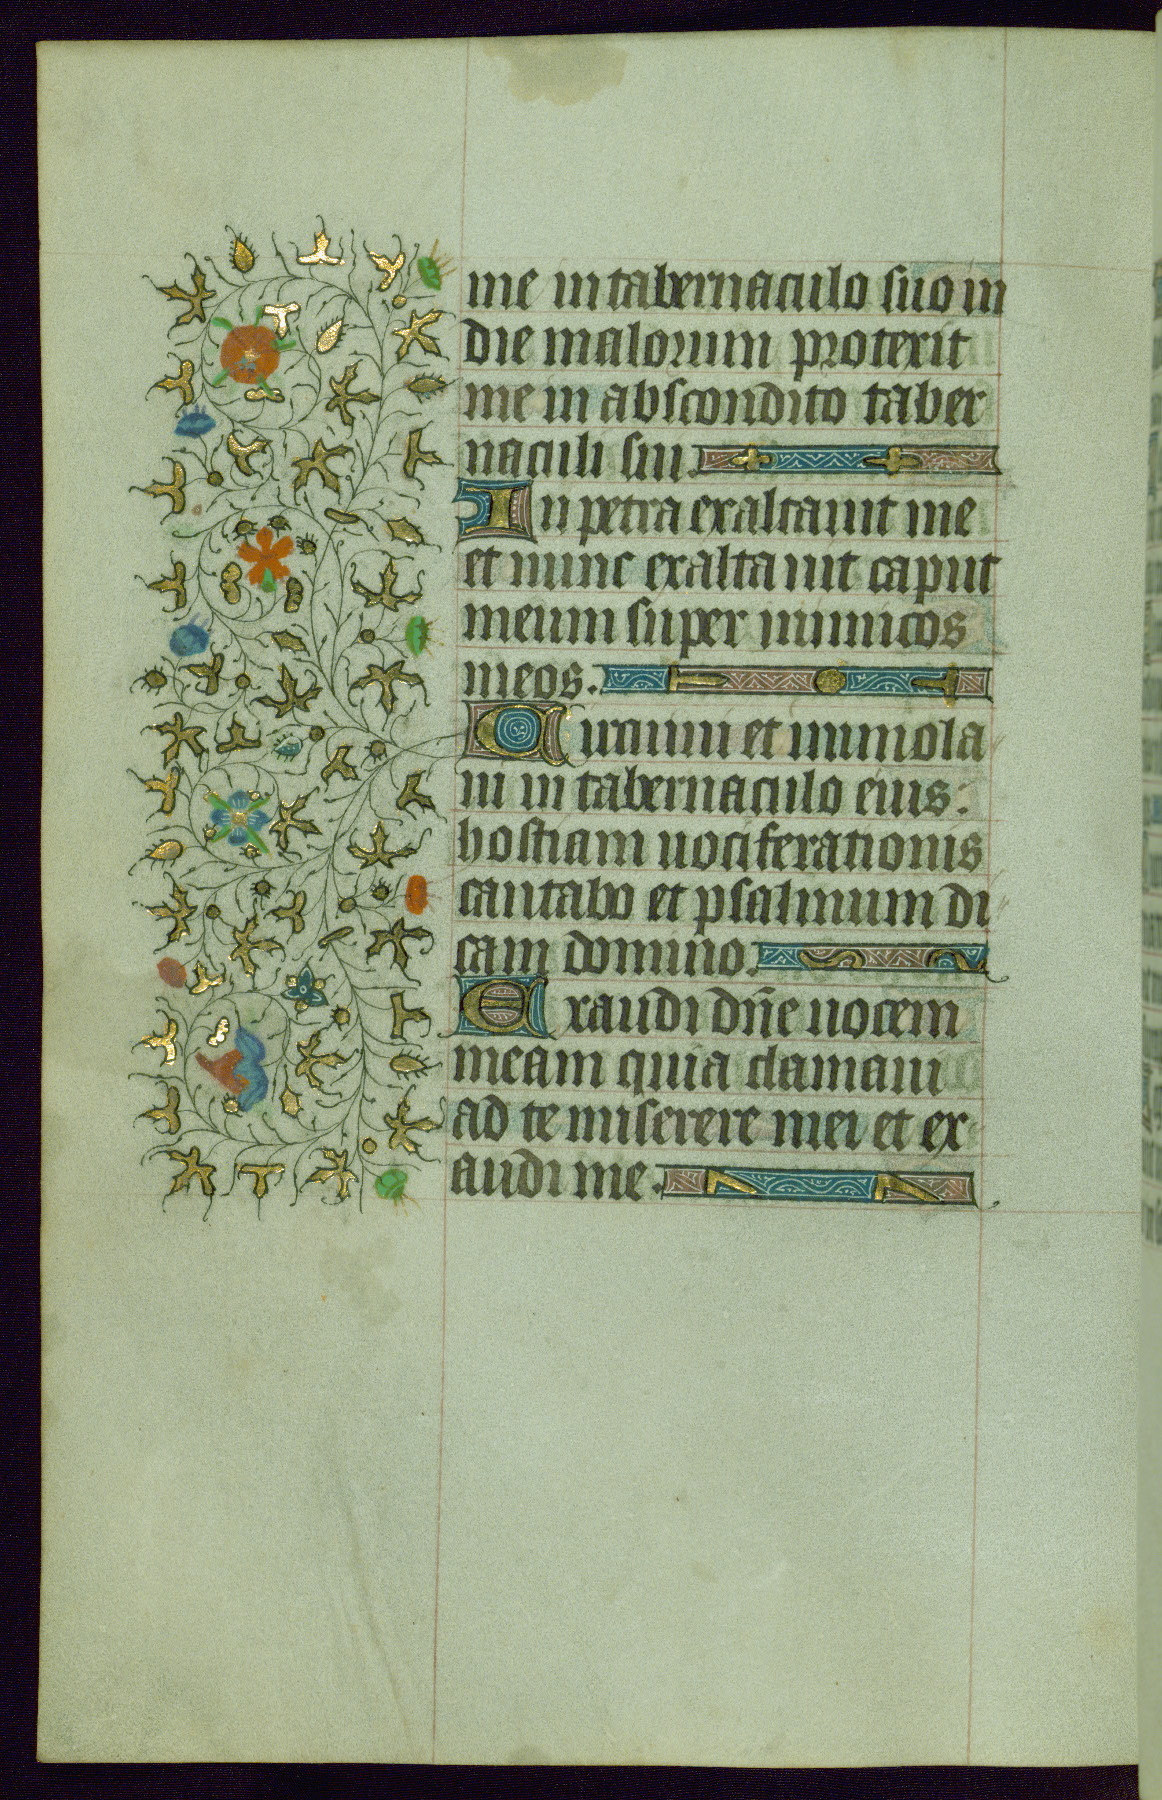 me in tabernaculo suo in
die malorum protexit
me in abscondito taber
naculi sui.
In petra exaltauit me
et nunc exaltauit caput
meum super inimicos
meos.
Circuiui et immola
ui in tabernaculo eius:
hostiam uociferationis
cantabo et psalmum di
cam domino.
Exaudi dn̄e uocem
meam quia clamaui
ad te miserere mei et ex
audi me.